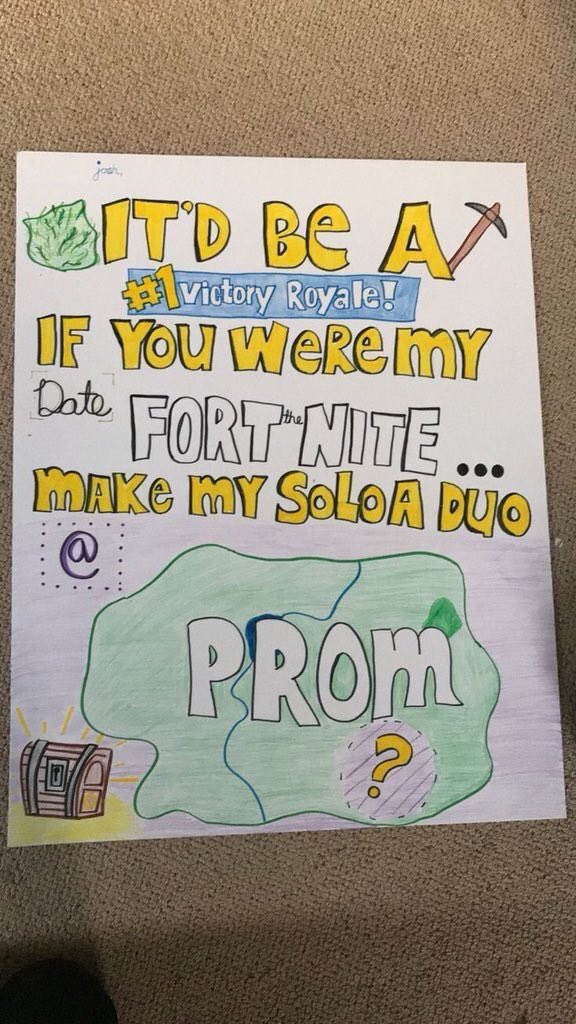 josh,
IT'D BE A
#1 Victory Royale!
IF YOU WERE MY
Date FORT the NITE ...
MAKE MY SOLO A DUO
@
PROM
?